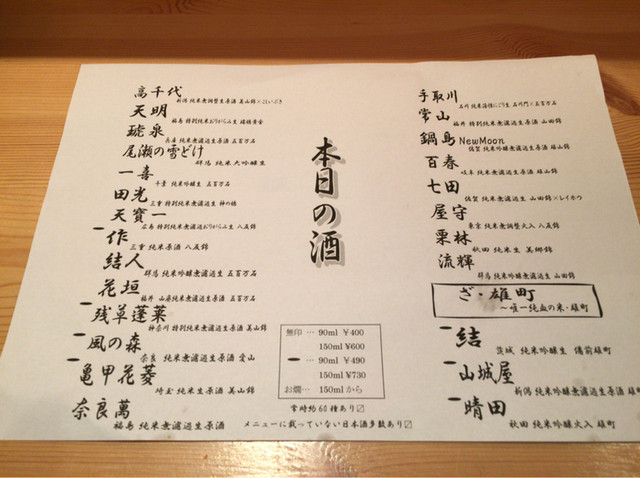 高千代
新潟 純米無調整生原酒 美山錦×こしいぶき
天明
福島 特別純米おりがらみ生 瑞穂黄金
琥泉
兵庫 純米吟醸無濾過生原酒 五百万石
尾瀬の雪どけ
群馬 純米大吟醸生
一喜
千葉 純米吟醸生 五百万石
田光
三重 特別純米無濾過生原酒 神の穂
天寶一
広島 特別純米無濾過おりがらみ生 八反錦
ー作
三重 純米原酒 八反錦
結人
群馬 純米吟醸無濾過生 五百万石
花垣
福井 山廃純米無濾過生原酒 五百万石
ー残草蓬莱
神奈川 特別純米無濾過生原酒 美山錦
ー風の森
奈良 純米無濾過生原酒 愛山
ー亀甲花菱
埼玉 純米生原酒 美山錦
奈良萬
福島 純米無濾過生原酒
本日の酒
無印 … 90ml ¥400
150ml ¥600
ー … 90ml ¥490
150ml ¥730
お燗… 150mlから
常時約60種あり〼
メニューに載っていない日本酒多数あり〼
手取川
石川 純米滓酒にごり生 石川門×五百万石
常山
福井 特別純米無濾過生原酒 山田錦
鍋島 NewMoon
佐賀 純米吟醸無濾過生原酒 雄山錦
百春
岐阜 純米無濾過生原酒 雄山錦
七田
佐賀 純米無濾過生 山田錦×レイホウ
屋守
東京 純米無調整火入 八反錦
栗林
秋田 純米生 美郷錦
流輝
群馬 純米吟醸無濾過生 山田錦
ざ・雄町
～唯一純血の米・雄町
ー結
茨城 純米吟醸生 備前雄町
ー山城屋
新潟 純米吟醸無濾過生原酒 雄町
ー晴田
秋田 純米吟醸火入 雄町